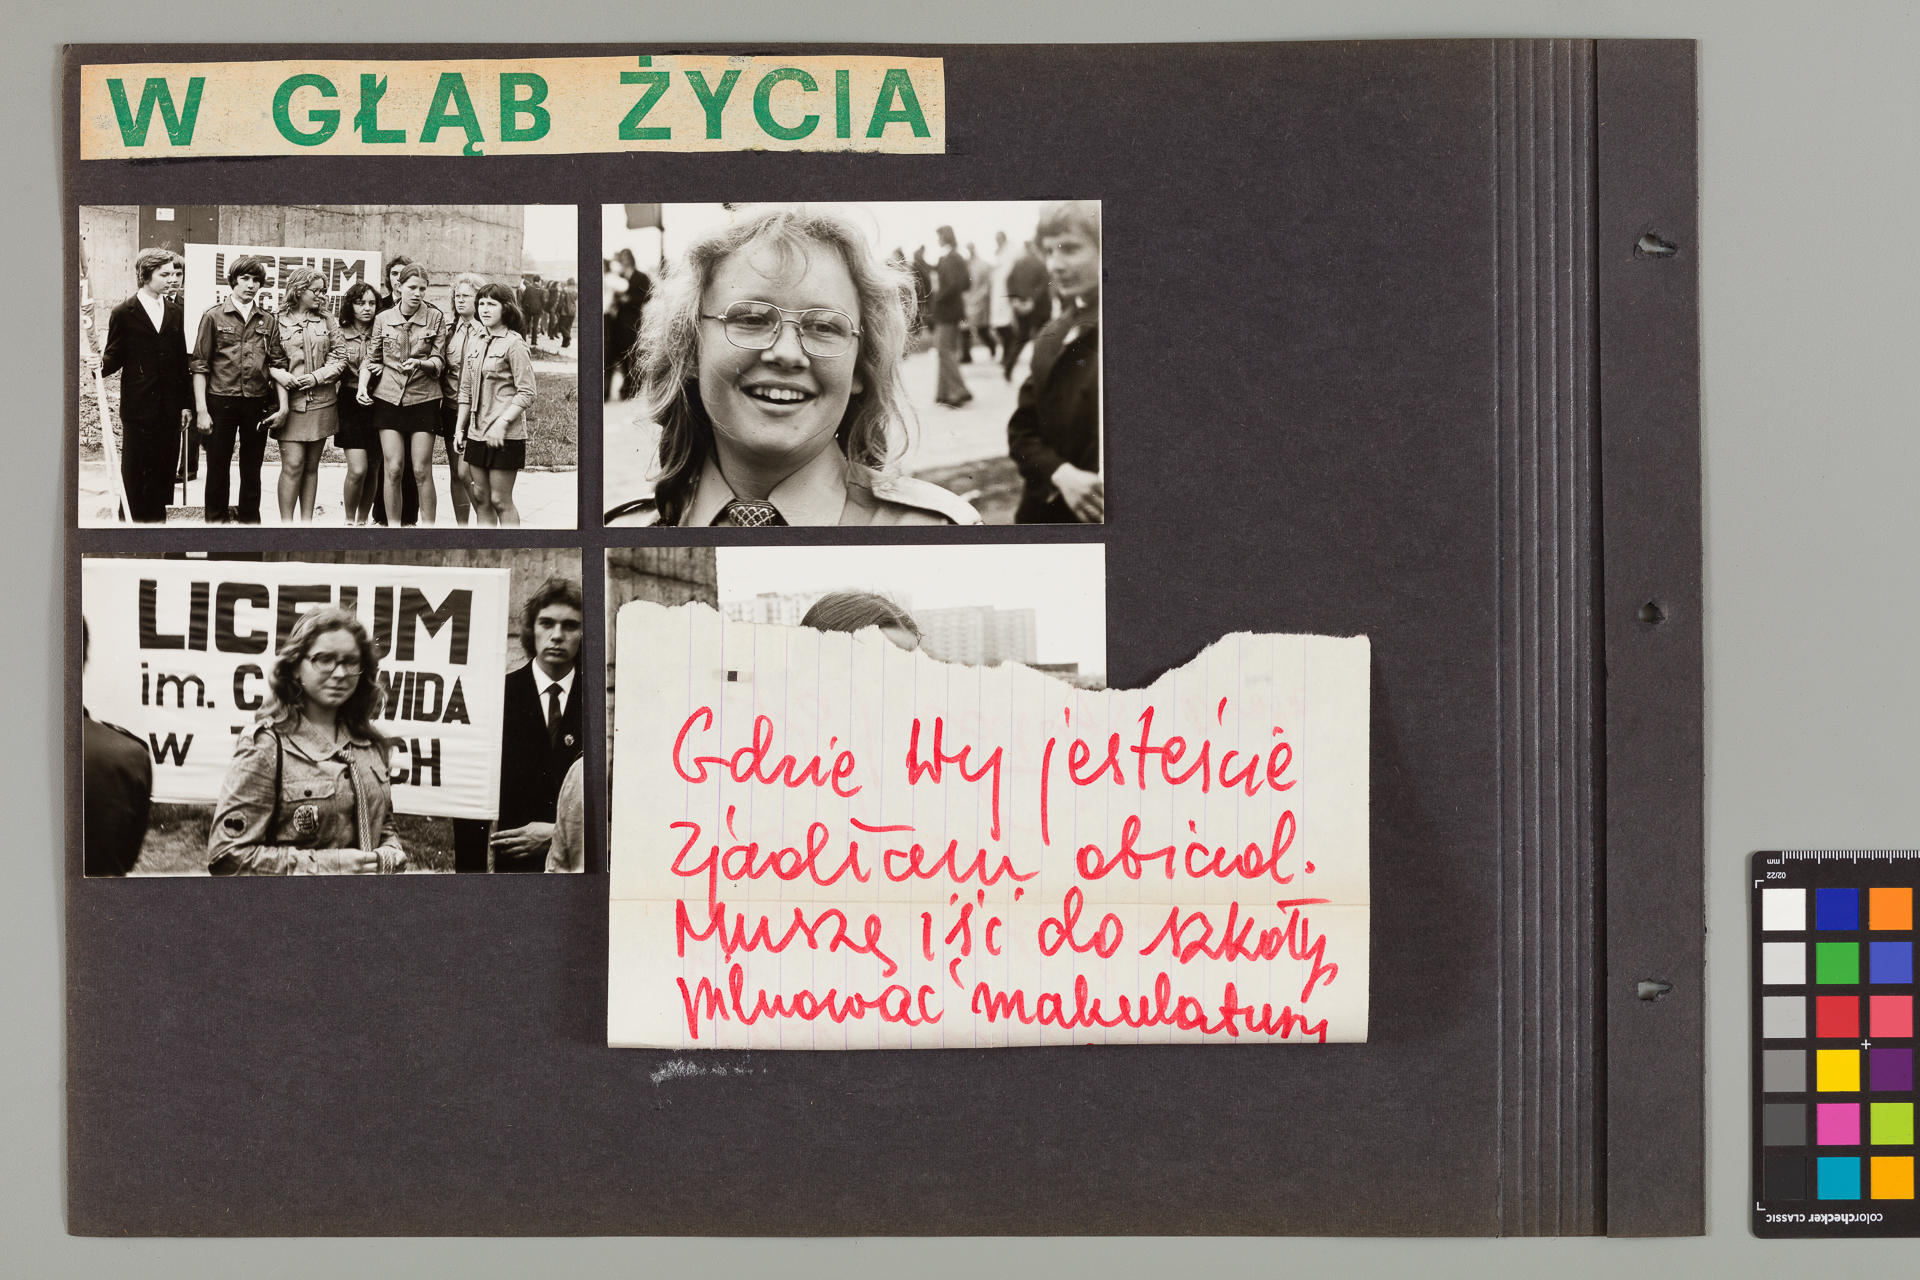 W GŁĄB ŻYCIA
LICEUM
LICEUM
im. C WIDA
W CH
Gdzie Wy jesteście
Zjadłam obiad.
Muszę iść do szkoły
pilnować makulatury
mm
02/22
colorchecker CLASSIC